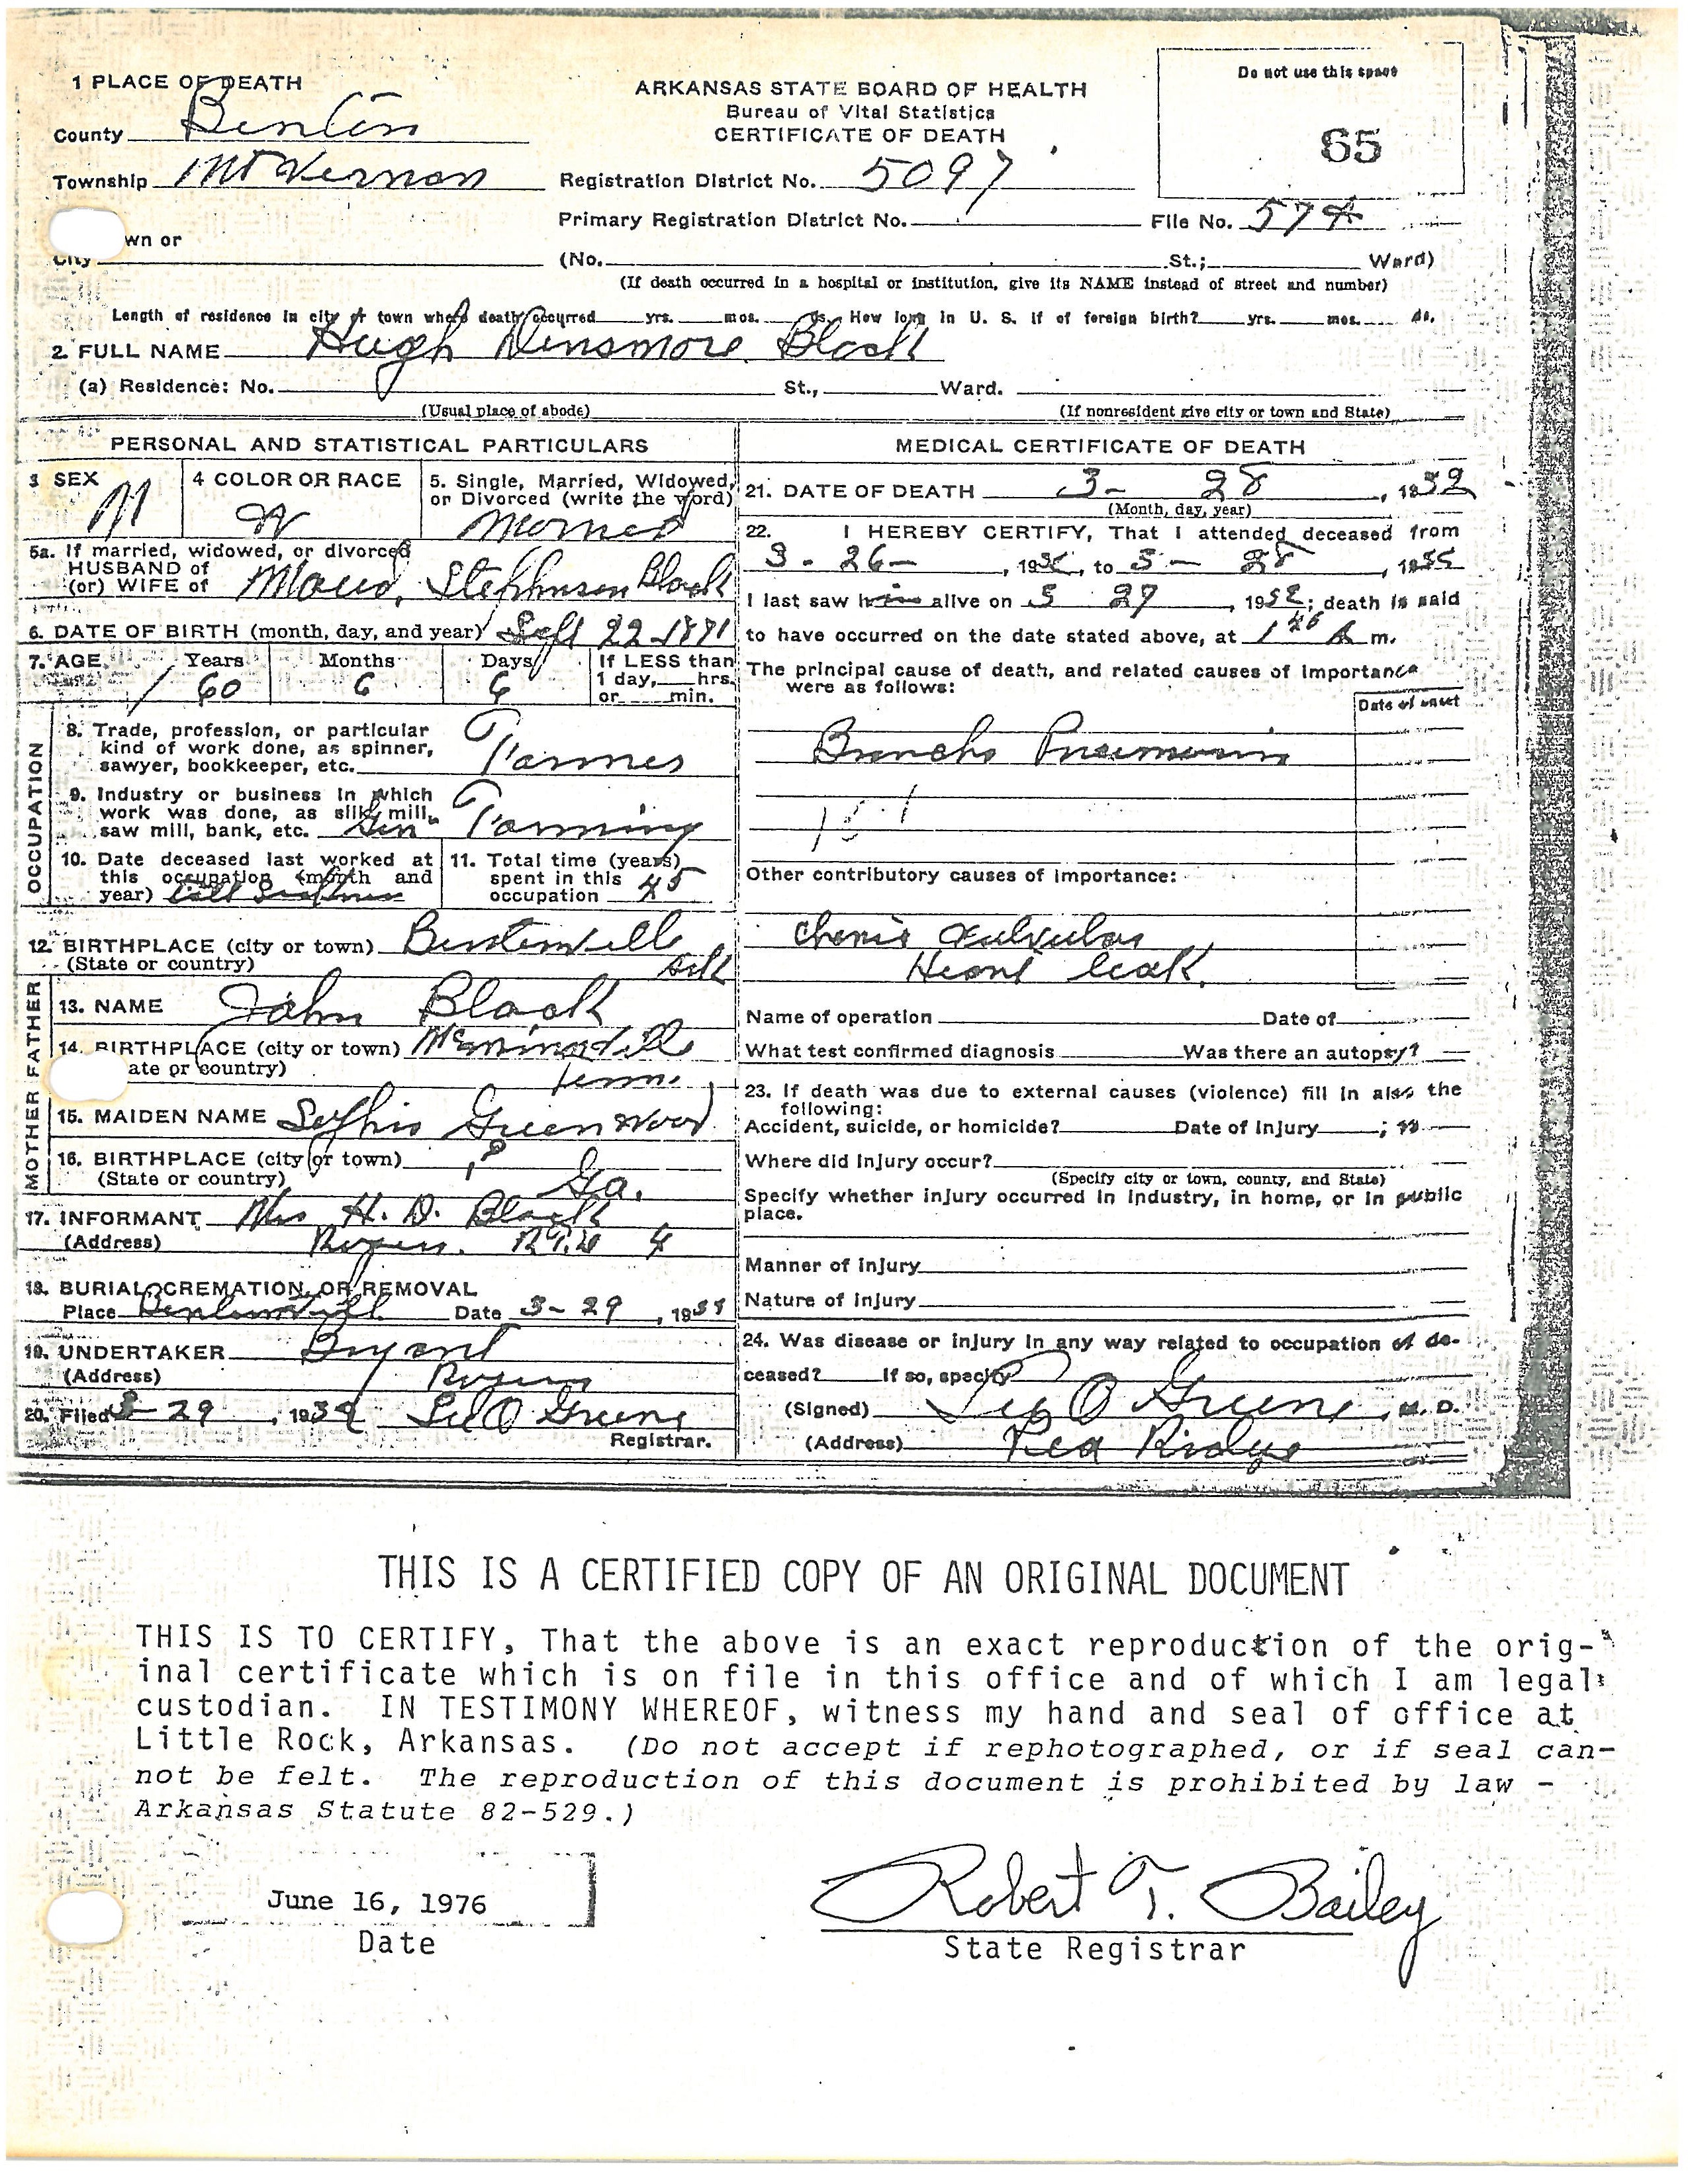 1 PLACE OF DEATH
County Benton
Township Mt Vernon
wn or
City (No. St.; Ward)
ARKANSAS STATE BOARD OF HEALTH
Bureau of Vital Statistics
CERTIFICATE OF DEATH
Registration District No. 5097
Primary Registration District No. File No. 574
Do not use this space
65
(If death occurred in a hospital or institution, give its NAME instead of street and number)
Length of residence in city or town where death occurred yrs. mos. ds. How long in U. S. if of foreign birth? yrs. mos. ds.
2. FULL NAME Hugh Dinsmore Black
(a) Residence: No. St., Ward.
(Usual place of abode) (If nonresident give city or town and State)
PERSONAL AND STATISTICAL PARTICULARS
3 SEX M
4 COLOR OR RACE W
5. Single, Married, Widowed, or Divorced (write the word)
5a. If married, widowed, or divorced
HUSBAND of
(or) WIFE of Maud Stephenson Black
6. DATE OF BIRTH (month, day, and year) Sept 22-1871
7. AGE Years Months Days If LESS than
60 6 6 1 day, hrs.
or min.
OCCUPATION
8. Trade, profession, or particular
kind of work done, as spinner,
sawyer, bookkeeper, etc. Farmer
9. Industry or business in which
work was done, as silk mill,
saw mill, bank, etc. Gen Farming
10. Date deceased last worked at
this occupation (month and
year)
11. Total time (years)
spent in this
occupation 45
12. BIRTHPLACE (city or town) Bentonville
(State or country) Ark
FATHER
13. NAME John Black
14. BIRTHPLACE (city or town) McMinnville
ate or country) Tenn.
MOTHER
15. MAIDEN NAME Greenwood
16. BIRTHPLACE (city or town) ?
(State or country) Ga.
17. INFORMANT Mrs H. D. Black
(Address) Rogers. 4
18. BURIAL, CREMATION, OR REMOVAL
Place Bentonville Date 3-29, 19
19. UNDERTAKER Bryant
(Address) Rogers
20. Filed 3-29, 1932 Lee O Greene
Registrar.
MEDICAL CERTIFICATE OF DEATH
21. DATE OF DEATH 3- 28, 1932
(Month, day, year)
22. I HEREBY CERTIFY, That I attended deceased from
3-26-, 19, to 3- 28, 19
I last saw him alive on 3 27, 1932; death is said
to have occurred on the date stated above, at A m.
The principal cause of death, and related causes of importance
were as follows:
Date of onset
Broncho Pneumonia
Other contributory causes of importance:
Heart leak.
Name of operation Date of
What test confirmed diagnosis Was there an autopsy?
23. If death was due to external causes (violence) fill in also the
following:
Accident, suicide, or homicide? Date of injury ; 19
Where did injury occur?
(Specify city or town, county, and State)
Specify whether injury occurred in industry, in home, or in public
place.
Manner of injury
Nature of injury
24. Was disease or injury in any way related to occupation of de-
ceased? If so, specify
(Signed) Lee O Greene, M. D.
(Address) Pea Ridge
THIS IS A CERTIFIED COPY OF AN ORIGINAL DOCUMENT
THIS IS TO CERTIFY, That the above is an exact reproduction of the orig-
inal certificate which is on file in this office and of which I am legal
custodian. IN TESTIMONY WHEREOF, witness my hand and seal of office at
Little Rock, Arkansas. (Do not accept if rephotographed, or if seal can-
not be felt. The reproduction of this document is prohibited by law -
Arkansas Statute 82-529.)
June 16, 1976
Date
Robert T. Bailey
State Registrar